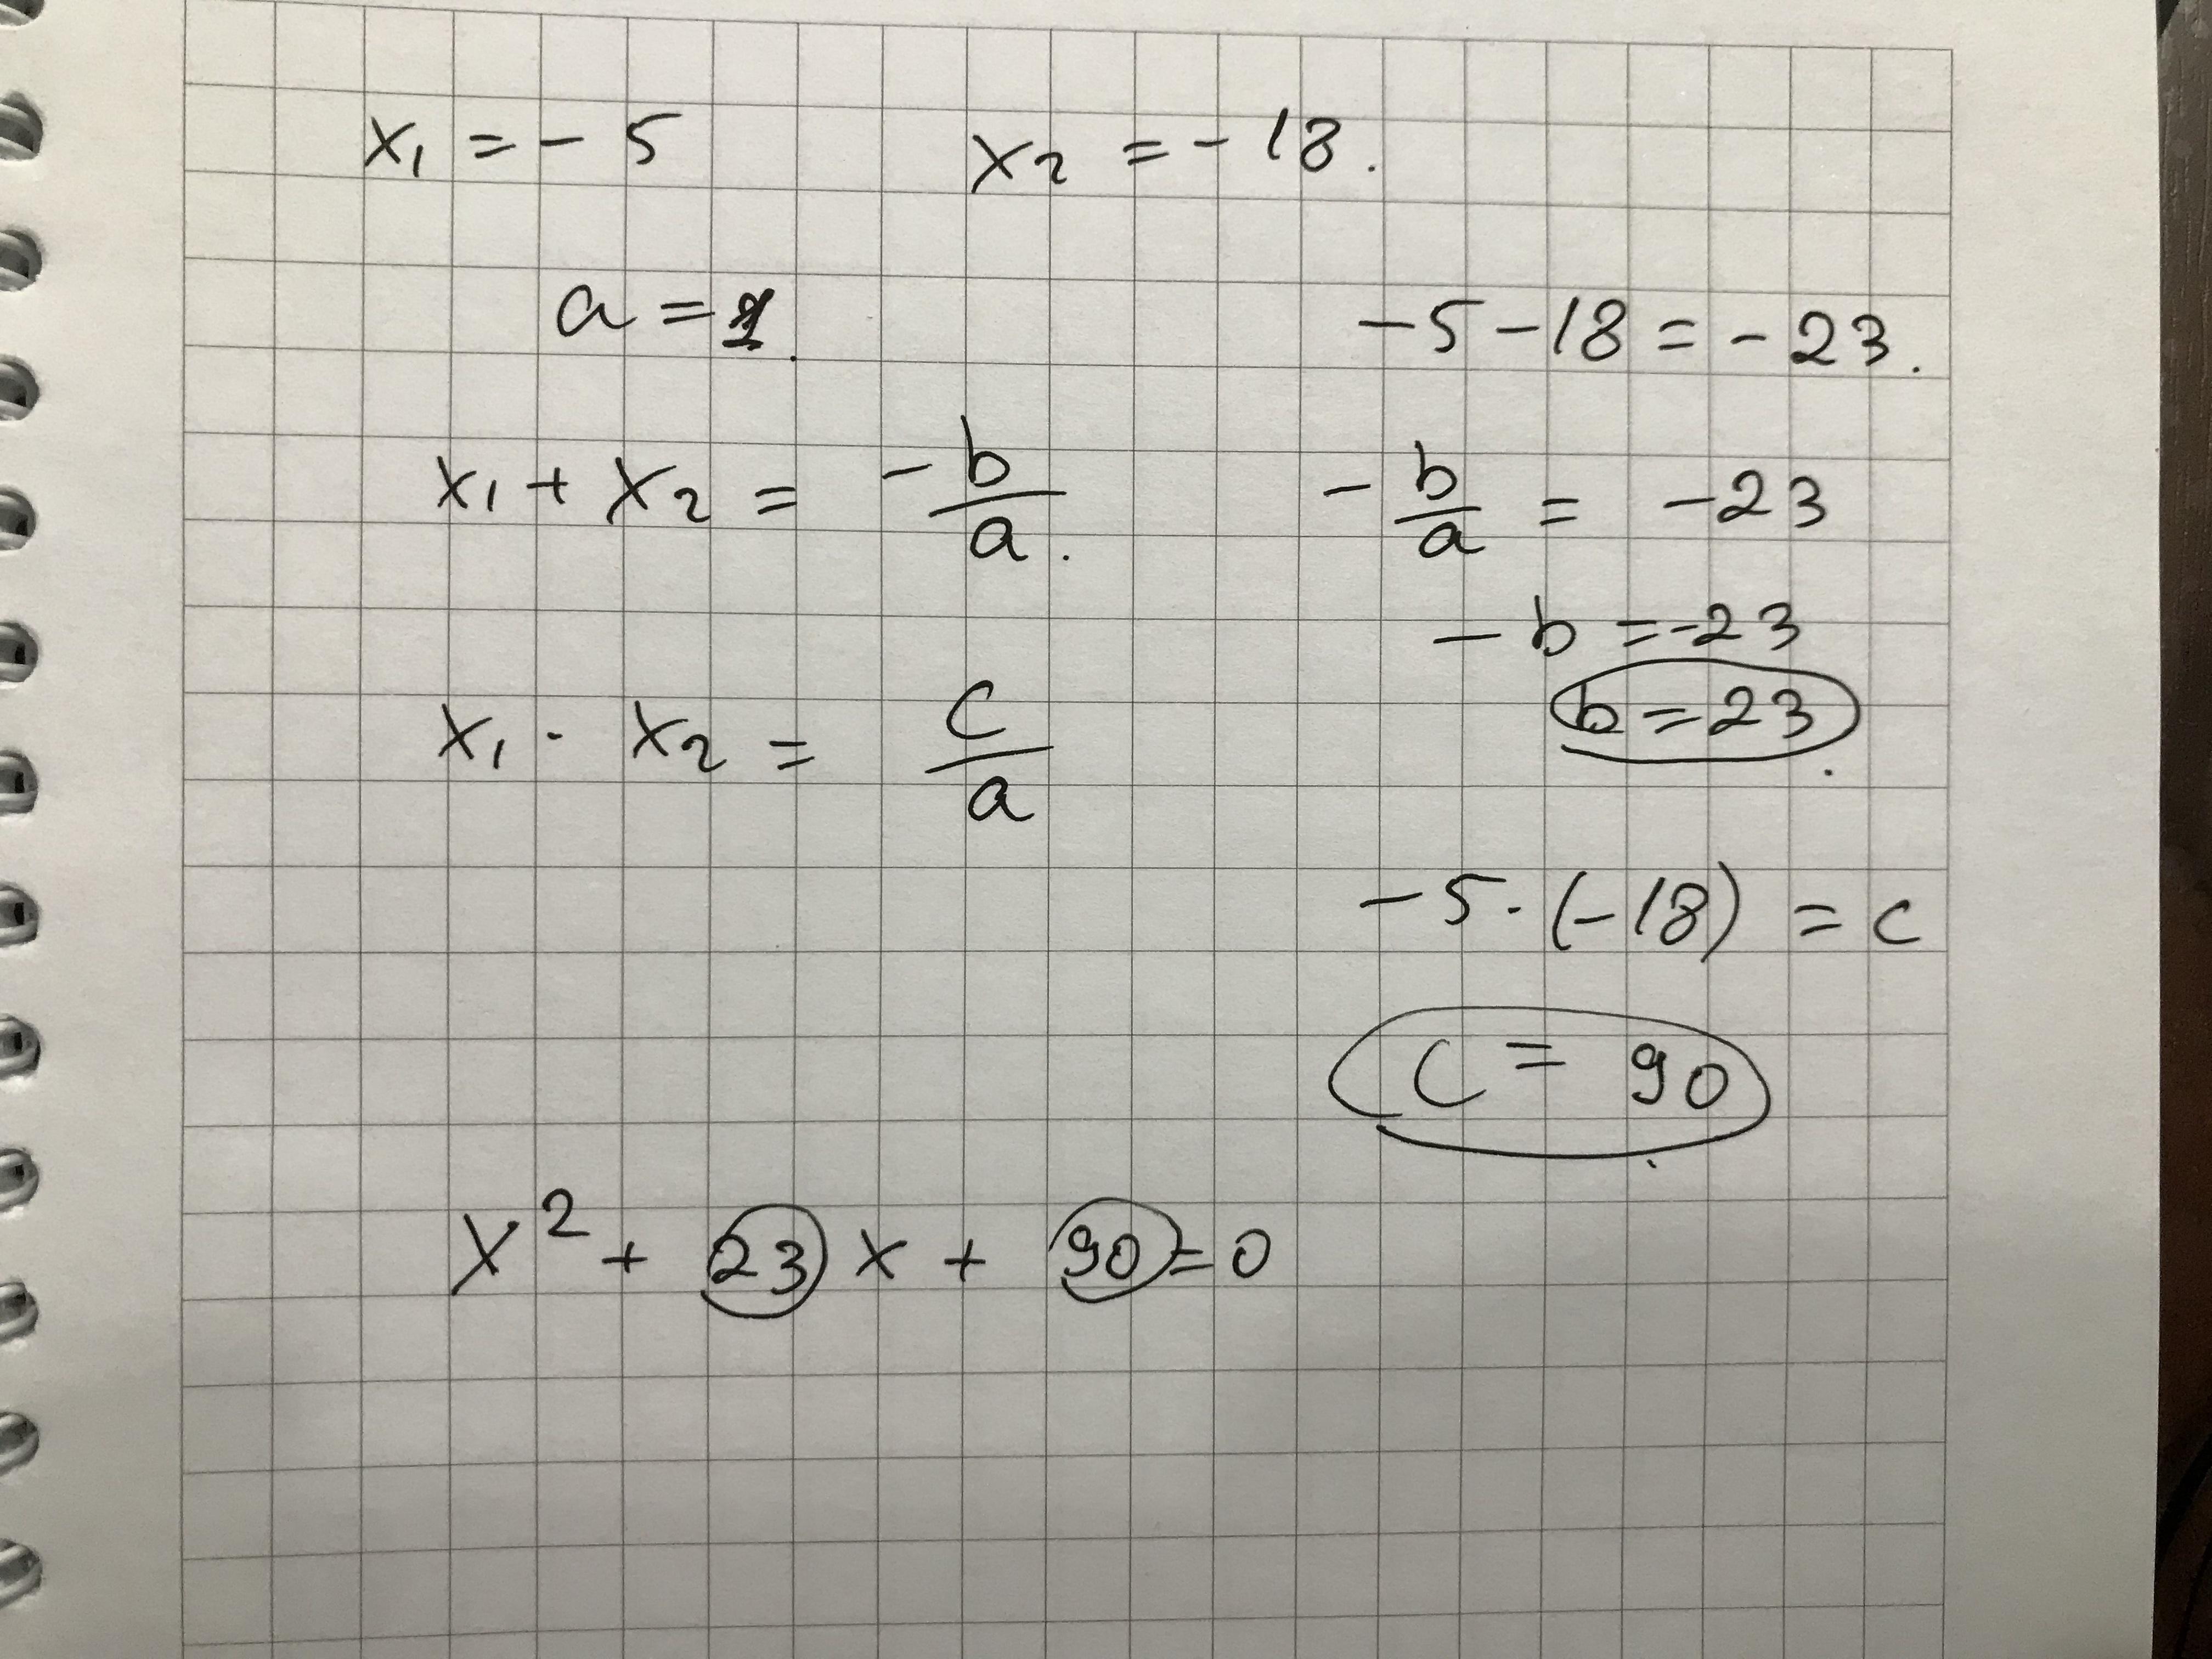 x₁ = - 5    x₂ = - 18.
a = 1.    -5 - 18 = - 23.
x₁ + x₂ = - b/a.    - b/a = -23
- b = -23
b = 23
x₁ · x₂ = c/a
-5 · (-18) = c
c = 90
x² + 23 x + 90 = 0